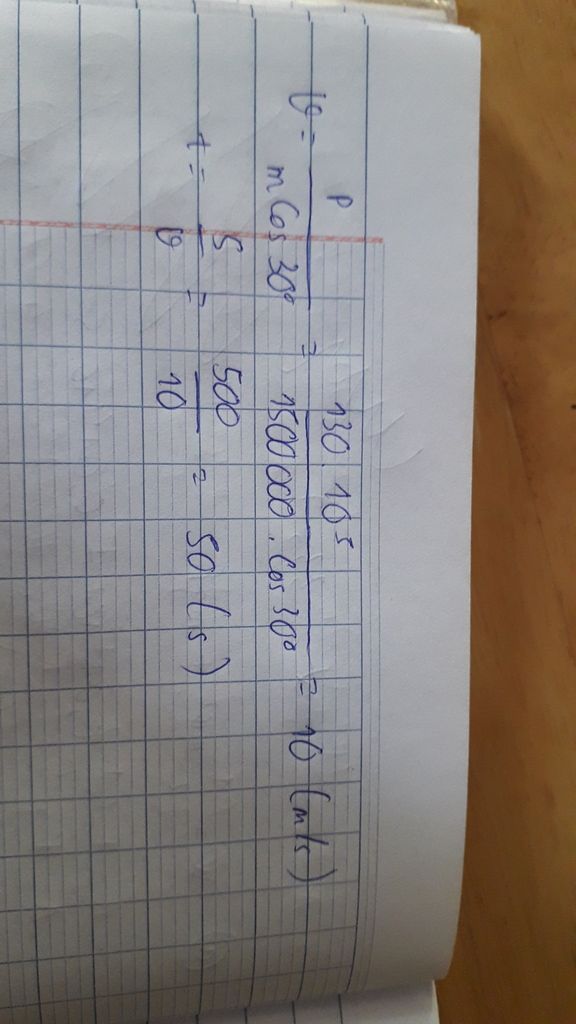 v = P / m Cos 30° = 130.10⁵ / 1500000 . Cos 30° = 10 (m/s)
t = S / v = 500 / 10 = 50 (s)